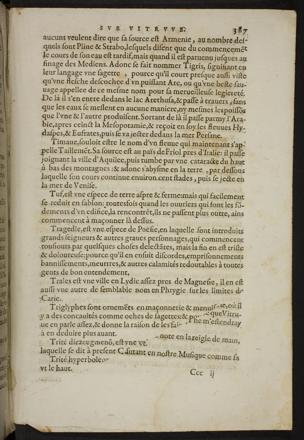 SVR VITRVVE. 387
aucuns veulent dire que sa source est Armenie, au nombre des-
quelz sont Pline & Strabo, lesquelz disent que du commencemẽt
le cours de son eau est tardif, mais quand il est paruenu iusques au
finage des Mediens. Adonc se fait nommer Tigris, signifiant en
leur langage vne sagette, pource qu'il court presque aussi viste
qu'vne fleche descochee d'vn puissant Arc, ou qu'vne beste sau-
uage appellee de ce mesme nom pour sa merueilleuse legiereté.
De là il s'en entre dedans le lac Arethusa, & passe à trauers, sans
que les eaux se meslent en aucune maniere, ny mesmes les poissons
que l'vne & l'autre produisent. Sortant de là il passe parmy l'Ara-
bie, apres ceinct la Mesopotamie, & reçoit en soy les fleuues Hy-
daspes, & Eufrates, puis se va iecter dedans la mer Persine.
Timaue, souloit estre le nom d'vn fleuue qui maintenant s'ap-
pelle Taillemẽt. Sa source est au païs de Friol pres d'Italie: il passe
ioignant la ville d'Aquilee, puis tumbe par vne cataracte du haut
à bas des montagnes: & adonc s'abysme en la terre, par dessous
laquelle son cours continue enuiron cent stades, puis se iecte en
la mer de Venise.
Tuf, est vne espece de terre aspre & ferme, mais qui facilement
se reduit en sablon: toutesfois quand les ouuriers qui sont les fõ-
demens d'vn edifice, la rencontrẽt, ilz ne passent plus outre, ains
commencent à maçonner là dessus.
Tragedie, est vne espece de Poësie, en laquelle sont introduits
grands seigneurs & autres graues personnages, qui commencent
tousiours par quelques choses delectables, mais la fin en est triste
& doloureuse: pource qu'il en ensuit discordes, emprisonnements
bannissements, meurtres, & autres calamités redoutables à toutes
gents de bon entendement.
Trales est vne ville en Lydie assez pres de Magnese, il en est
aussi vne autre de semblable nom en Phrygie sur les limites de
Carie.
Triglyphes sont ornemẽts en maçonnerie & où il
y a des concauités comme oches de sagettes & que Vitru-
ue en parle assez, & donne la raison de les
à en deduire plus auant.
Trite diezeugmenõ, est vne note en la reigle de main,
laquelle se dit à present C autant en nostre Musique comme fa
Trite hyperbole
vt le haut.
Ccc ij